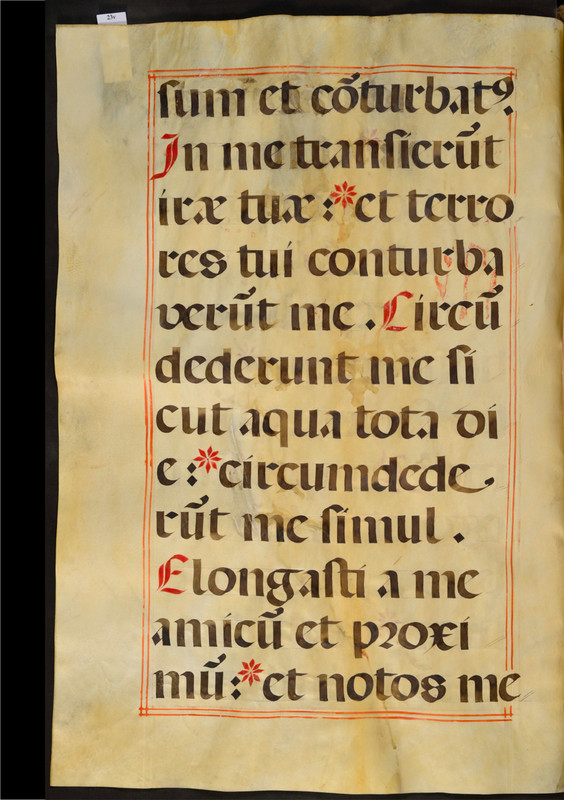 23v
ſum et cõturbatꝰ.
In me tranſierũt
iræ tuæ :* et terro
res tui conturba
verũt me . Circũ
dederunt me ſi
cut aqua tota di
e :* circumdede
rũt me ſimul .
Elongaſti a me
amicũ et proxi
mũ :* et notos me